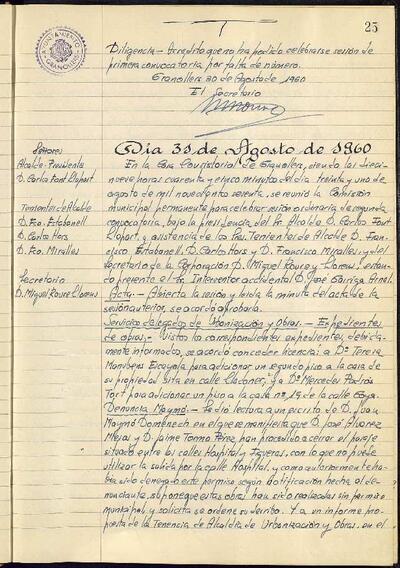 25
AYUNTAMIENTO GRANOLLERS
Diligencia.- Acredito que no ha podido celebrarse sesión de
primera convocatoria por falta de número.
Granollers 30 de Agosto de 1960
El Secretario
Día 31 de Agosto de 1960
Señores
Alcalde-Presidente
D. Carlos Font Llopart
Tenientes de Alcalde
D. Fco. Estabanell
D. Carlos Hors
D. Fco. Miralles
Secretario
D. Miguel Roure Llorens
En la Casa Consistorial de Granollers, siendo las dieci-
nueve horas cuarenta y cinco minutos del día treinta y uno de
agosto de mil novecientos sesenta, se reunió la Comisión
municipal permanente para celebrar sesión ordinaria de segunda
convocatoria, bajo la presidencia del Sr. Alcalde D. Carlos Font
Llopart, y asistencia de los Sres. Tenientes de Alcalde D. Fran-
cisco Estabanell, D. Carlos Hors y D. Francisco Miralles y del
secretario de la Corporación D. Miguel Roure y Llorens, estando
presente el Sr. Interventor accidental D. José Garriga Arnal.
Acta.- Abierta la sesión y leída la minuta del acta de la
sesión anterior, se acordó aprobarla.
Servicios delegados de Urbanización y Obras.- Expedientes
de obras.- Vistos los correspondientes expedientes, debida-
mente informados, se acordó conceder licencia: a Dª Teresa
Monibens Escayola para adicionar un segundo piso a la casa de
su propiedad sita en calle Lladoner; y a Dª Mercedes Padrós
Tort para adicionar un piso a la casa nº 19 de la calle Goya.
Denuncia Maymó.- Se dio lectura a un escrito de D. Juan
Maymó Domenech en el que se manifiesta que D. José Alvarez
Mejas y D. Jaime Tormo Pérez han procedido a cerrar el pasaje
situado entre las calles Hospital y Figueras, con lo que no puede
utilizar la salida por la calle Hospital, y como anteriormente ha-
bía sido denegado este permiso según notificación hecha al de-
nunciante, supone que estas obras han sido realizadas sin permiso
municipal y solicita se ordene su derribo. Y a un informe pro-
puesta de la Tenencia de Alcaldía de Urbanización y Obras, en el